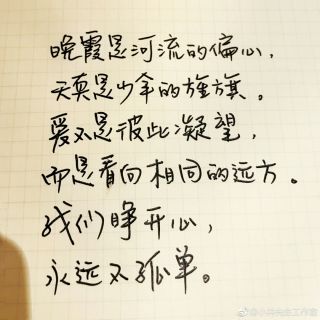 晚霞是河流的偏心,
天真是少年的旌旗。
爱不是彼此凝望,
而是看向相同的远方。
我们睁开心,
永远不孤单。